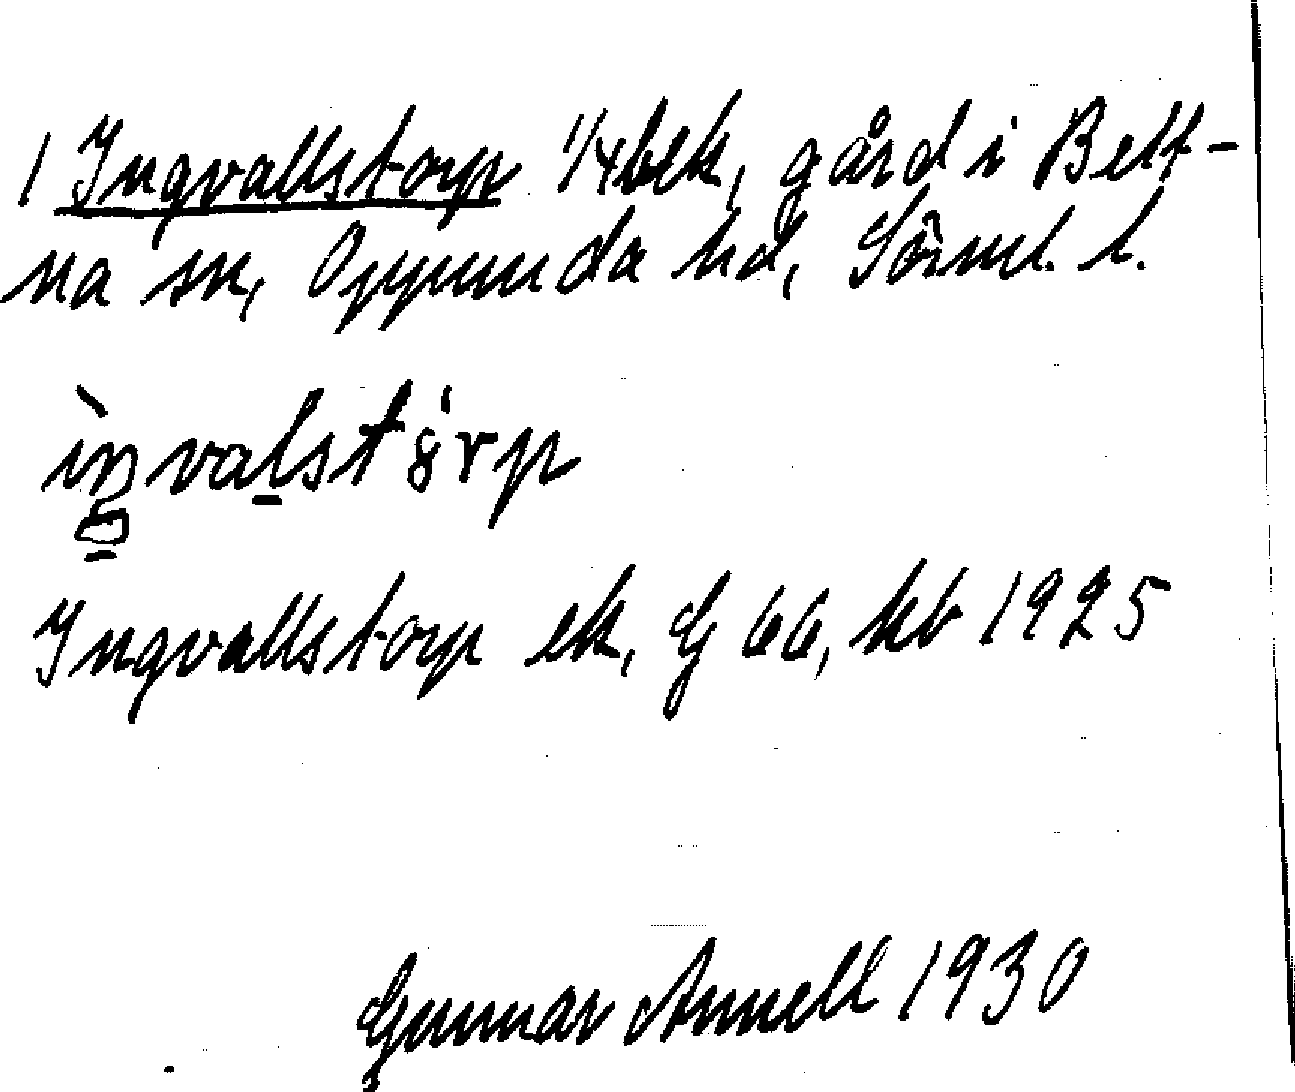 1 Ingvallstorp 1/4 bek, gård i Bett-
na sn, Oppunda hd, Sörml. l.
ìŋvalstó̤rp
Ingvallstorp ek, G 66, kb 1925
Gunnar Annell 1930